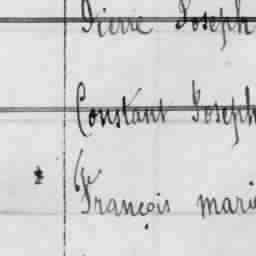 Pierre Joseph
Constant Joseph
François marie